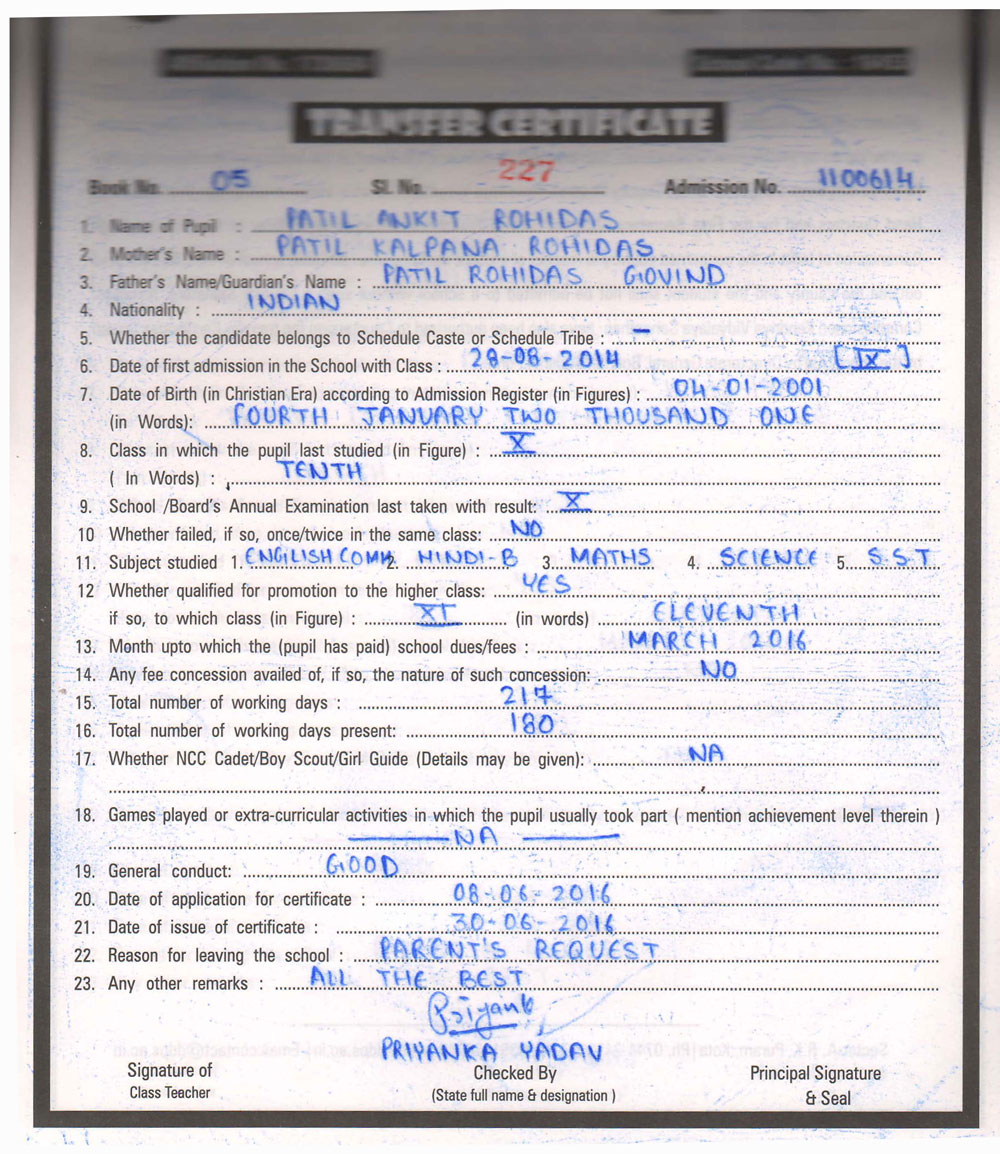 TRANSFER CERTIFICATE
Book No. 05 Sl. No. 227 Admission No. 1100614
1. Name of Pupil : PATIL ANKIT ROHIDAS
2. Mother's Name : PATIL KALPANA ROHIDAS
3. Father's Name/Guardian's Name : PATIL ROHIDAS GOVIND
4. Nationality : INDIAN
5. Whether the candidate belongs to Schedule Caste or Schedule Tribe : —
6. Date of first admission in the School with Class : 28-08-2014 [IX]
7. Date of Birth (in Christian Era) according to Admission Register (in Figures) : 04-01-2001
(in Words): FOURTH JANUARY TWO THOUSAND ONE
8. Class in which the pupil last studied (in Figure) : X
( In Words) : TENTH
9. School /Board's Annual Examination last taken with result: X
10 Whether failed, if so, once/twice in the same class: NO
11. Subject studied 1. ENGILISH COMM 2. HINDI-B 3. MATHS 4. SCIENCE 5. S.S.T
12 Whether qualified for promotion to the higher class: YES
if so, to which class (in Figure) : XI (in words) ELEVENTH
13. Month upto which the (pupil has paid) school dues/fees : MARCH 2016
14. Any fee concession availed of, if so, the nature of such concession: NO
15. Total number of working days : 217
16. Total number of working days present: 180
17. Whether NCC Cadet/Boy Scout/Girl Guide (Details may be given): NA
18. Games played or extra-curricular activities in which the pupil usually took part ( mention achievement level therein )
— NA —
19. General conduct: GOOD
20. Date of application for certificate : 08-06-2016
21. Date of issue of certificate : 30-06-2016
22. Reason for leaving the school : PARENT'S REQUEST
23. Any other remarks : ALL THE BEST
Priyanka
PRIYANKA YADAV
Signature of Checked By Principal Signature
Class Teacher (State full name & designation ) & Seal